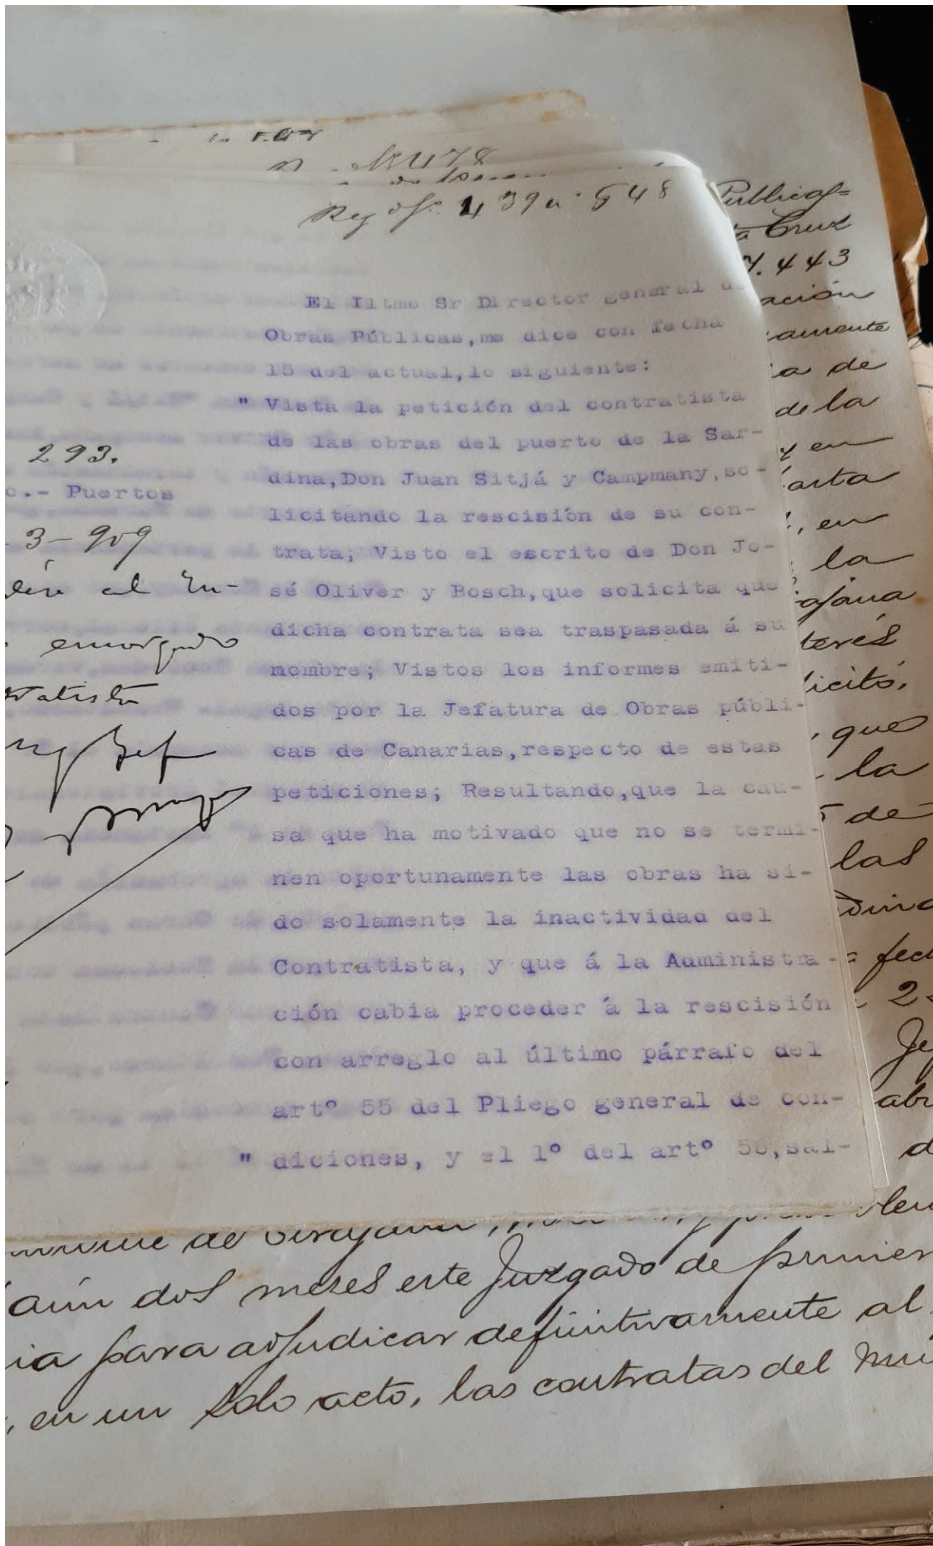 Nº 478
Reg of. 439 nº 548
El Iltmo Sr Director general de
Obras Públicas, me dice con fecha
15 del actual, lo siguiente:
" Vista la petición del contratista
de las obras del puerto de la Sar-
dina, Don Juan Sitjá y Campmany, so-
licitando la rescisión de su con-
trata; Visto el escrito de Don Jo-
sé Oliver y Bosch, que solicita que
dicha contrata sea traspasada á su
nombre; Vistos los informes emiti-
dos por la Jefatura de Obras públi-
cas de Canarias, respecto de estas
peticiones; Resultando, que la cau-
sa que ha motivado que no se termi-
nen oportunamente las obras ha si-
do solamente la inactividad del
Contratista, y que á la Administra-
ción cabia proceder á la rescisión
con arreglo al último párrafo del
artº 55 del Pliego general de con-
" diciones, y el 1º del artº 56, sal-
293.
o.- Puertos
-3-909
al In-
encargado
ratista
Jef
Publicas
ta Cruz
443
ación
amente
ia de
de la
y en
arta
, en
la
ajana
terés
licitó,
, que
la
de
las
dina
fech
2
Je
abr
d
de Tirajana,
aún dos meses este Juzgado de primer
ia para adjudicar definitivamente al
, en un solo acto, las contratas del Mu